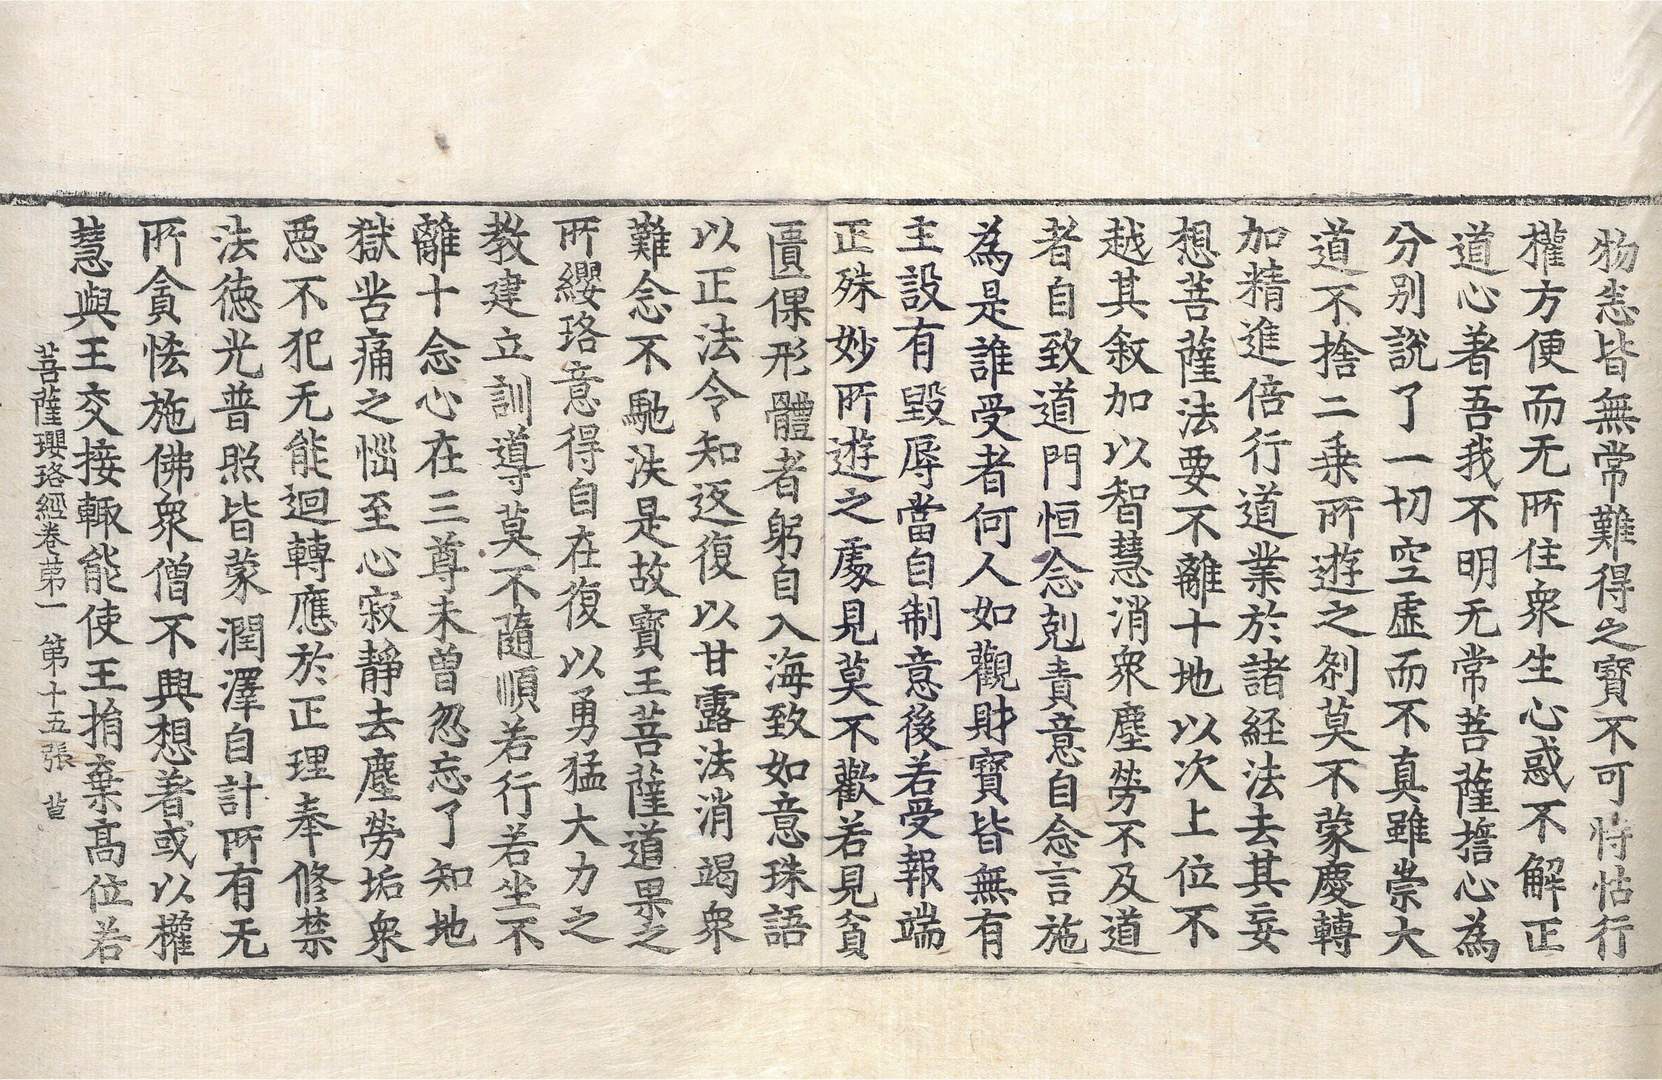 物恙皆無常難得之寶不可恃怙行
權方便而无所住衆生心惑不解正
道心著吾我不明无常菩薩擔心為
分別說了一切空虛而不真雖崇大
道不捨二乗所遊之剎莫不蒙慶轉
加精進倍行道業於諸経法去其妄
想菩薩法要不離十地以次上位不
越其敘加以智慧消衆塵勞不及道
者自致道門恒念剋責意自念言施
為是誰受者何人如觀財寶皆無有
主設有毀辱當自制意後若受報端
正殊妙所遊之處見莫不歡若見貧
匱倮形體者躬自入海致如意珠語
以正法令知返復以甘露法消竭衆
難念不馳泆是故寶王菩薩道果之
所纓珞意得自在復以勇猛大力之
教建立訓導莫不隨順若行若坐不
離十念心在三尊未曾忽忘了知地
獄苦痛之惱至心寂靜去塵勞垢衆
惡不犯无能迴轉應於正理奉修禁
法徳光普照皆蒙潤澤自計所有无
所貪悋施佛衆僧不興想著或以權
慧與王交接輙能使王捐棄髙位若
菩薩瓔珞經卷苐一 第十五張